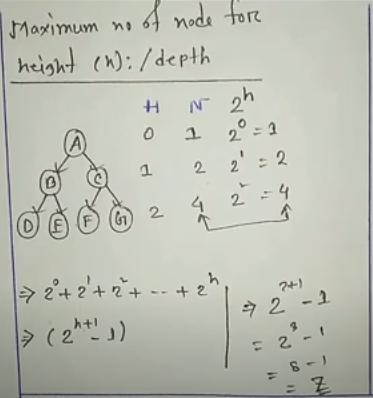 Maximum no of node for
height (h): / depth
H N 2^h
A 0 1 2^0 = 1
B C 1 2 2^1 = 2
D E F G 2 4 2^2 = 4
⇒ 2^0 + 2^1 + 2^2 + -- + 2^h
⇒ (2^h+1 - 1)
⇒ 2^2+1 - 1
= 2^3 - 1
= 8 - 1
= 7